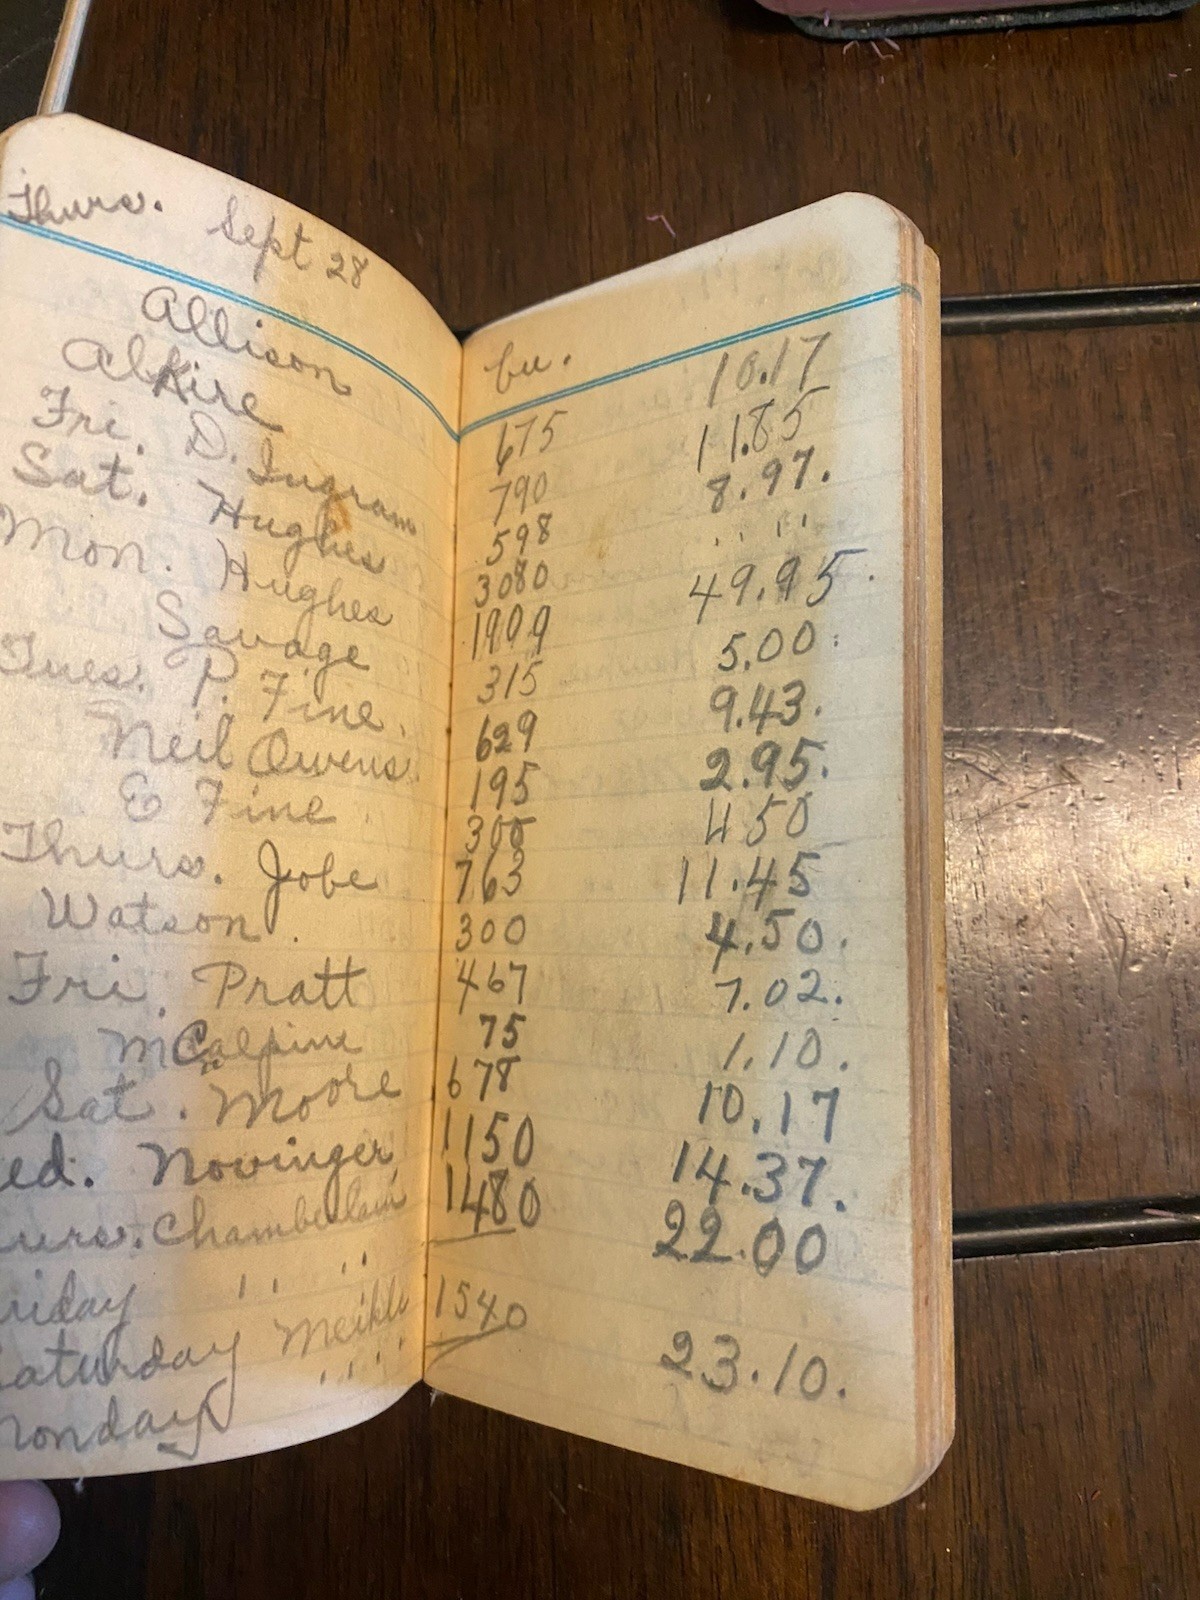 Thurs. Sept 28
bu.
Allison 675 10.17
Alkire 790 11.85
Fri. D. Ingram 598 8.97.
Sat. Hughes 3080 " "
Mon. Hughes 1999 49.95.
Savage 315 5.00.
Tues. P. Fine. 629 9.43.
Neil Owens. 195 2.95.
E Fine 300 4 50
Thurs. Jobe 763 11.45
Watson. 300 4.50.
Fri. Pratt 467 7.02.
McAlpine 75 1.10.
Sat. Moore 678 10.17
ed. Novinger 1150 14.37.
urs. Chamberlain 1480 22.00
riday " "
aturday Meikle 1540 23.10.
onday " "